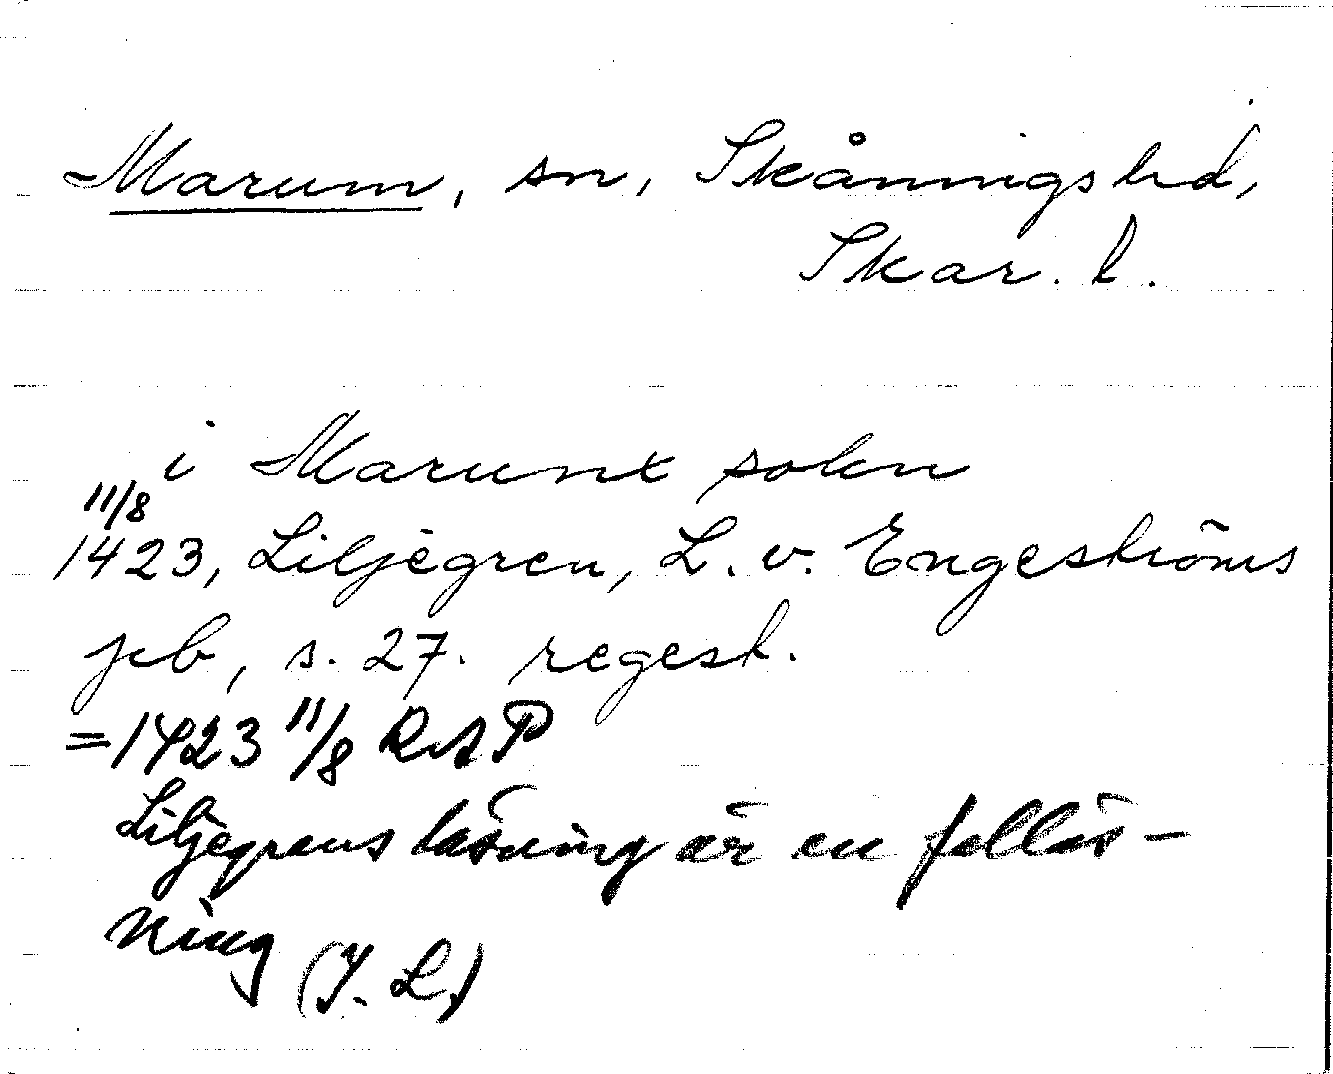 Marum, sn, Skånings hd,
Skar. l.
i Marunx sokn
11/8
1423, Liljegren, L. v. Engeströms
peb, s. 27. regest.
=1423 11/8 RAP
Liljegrens läsning är en felläs-
ning (I. L)